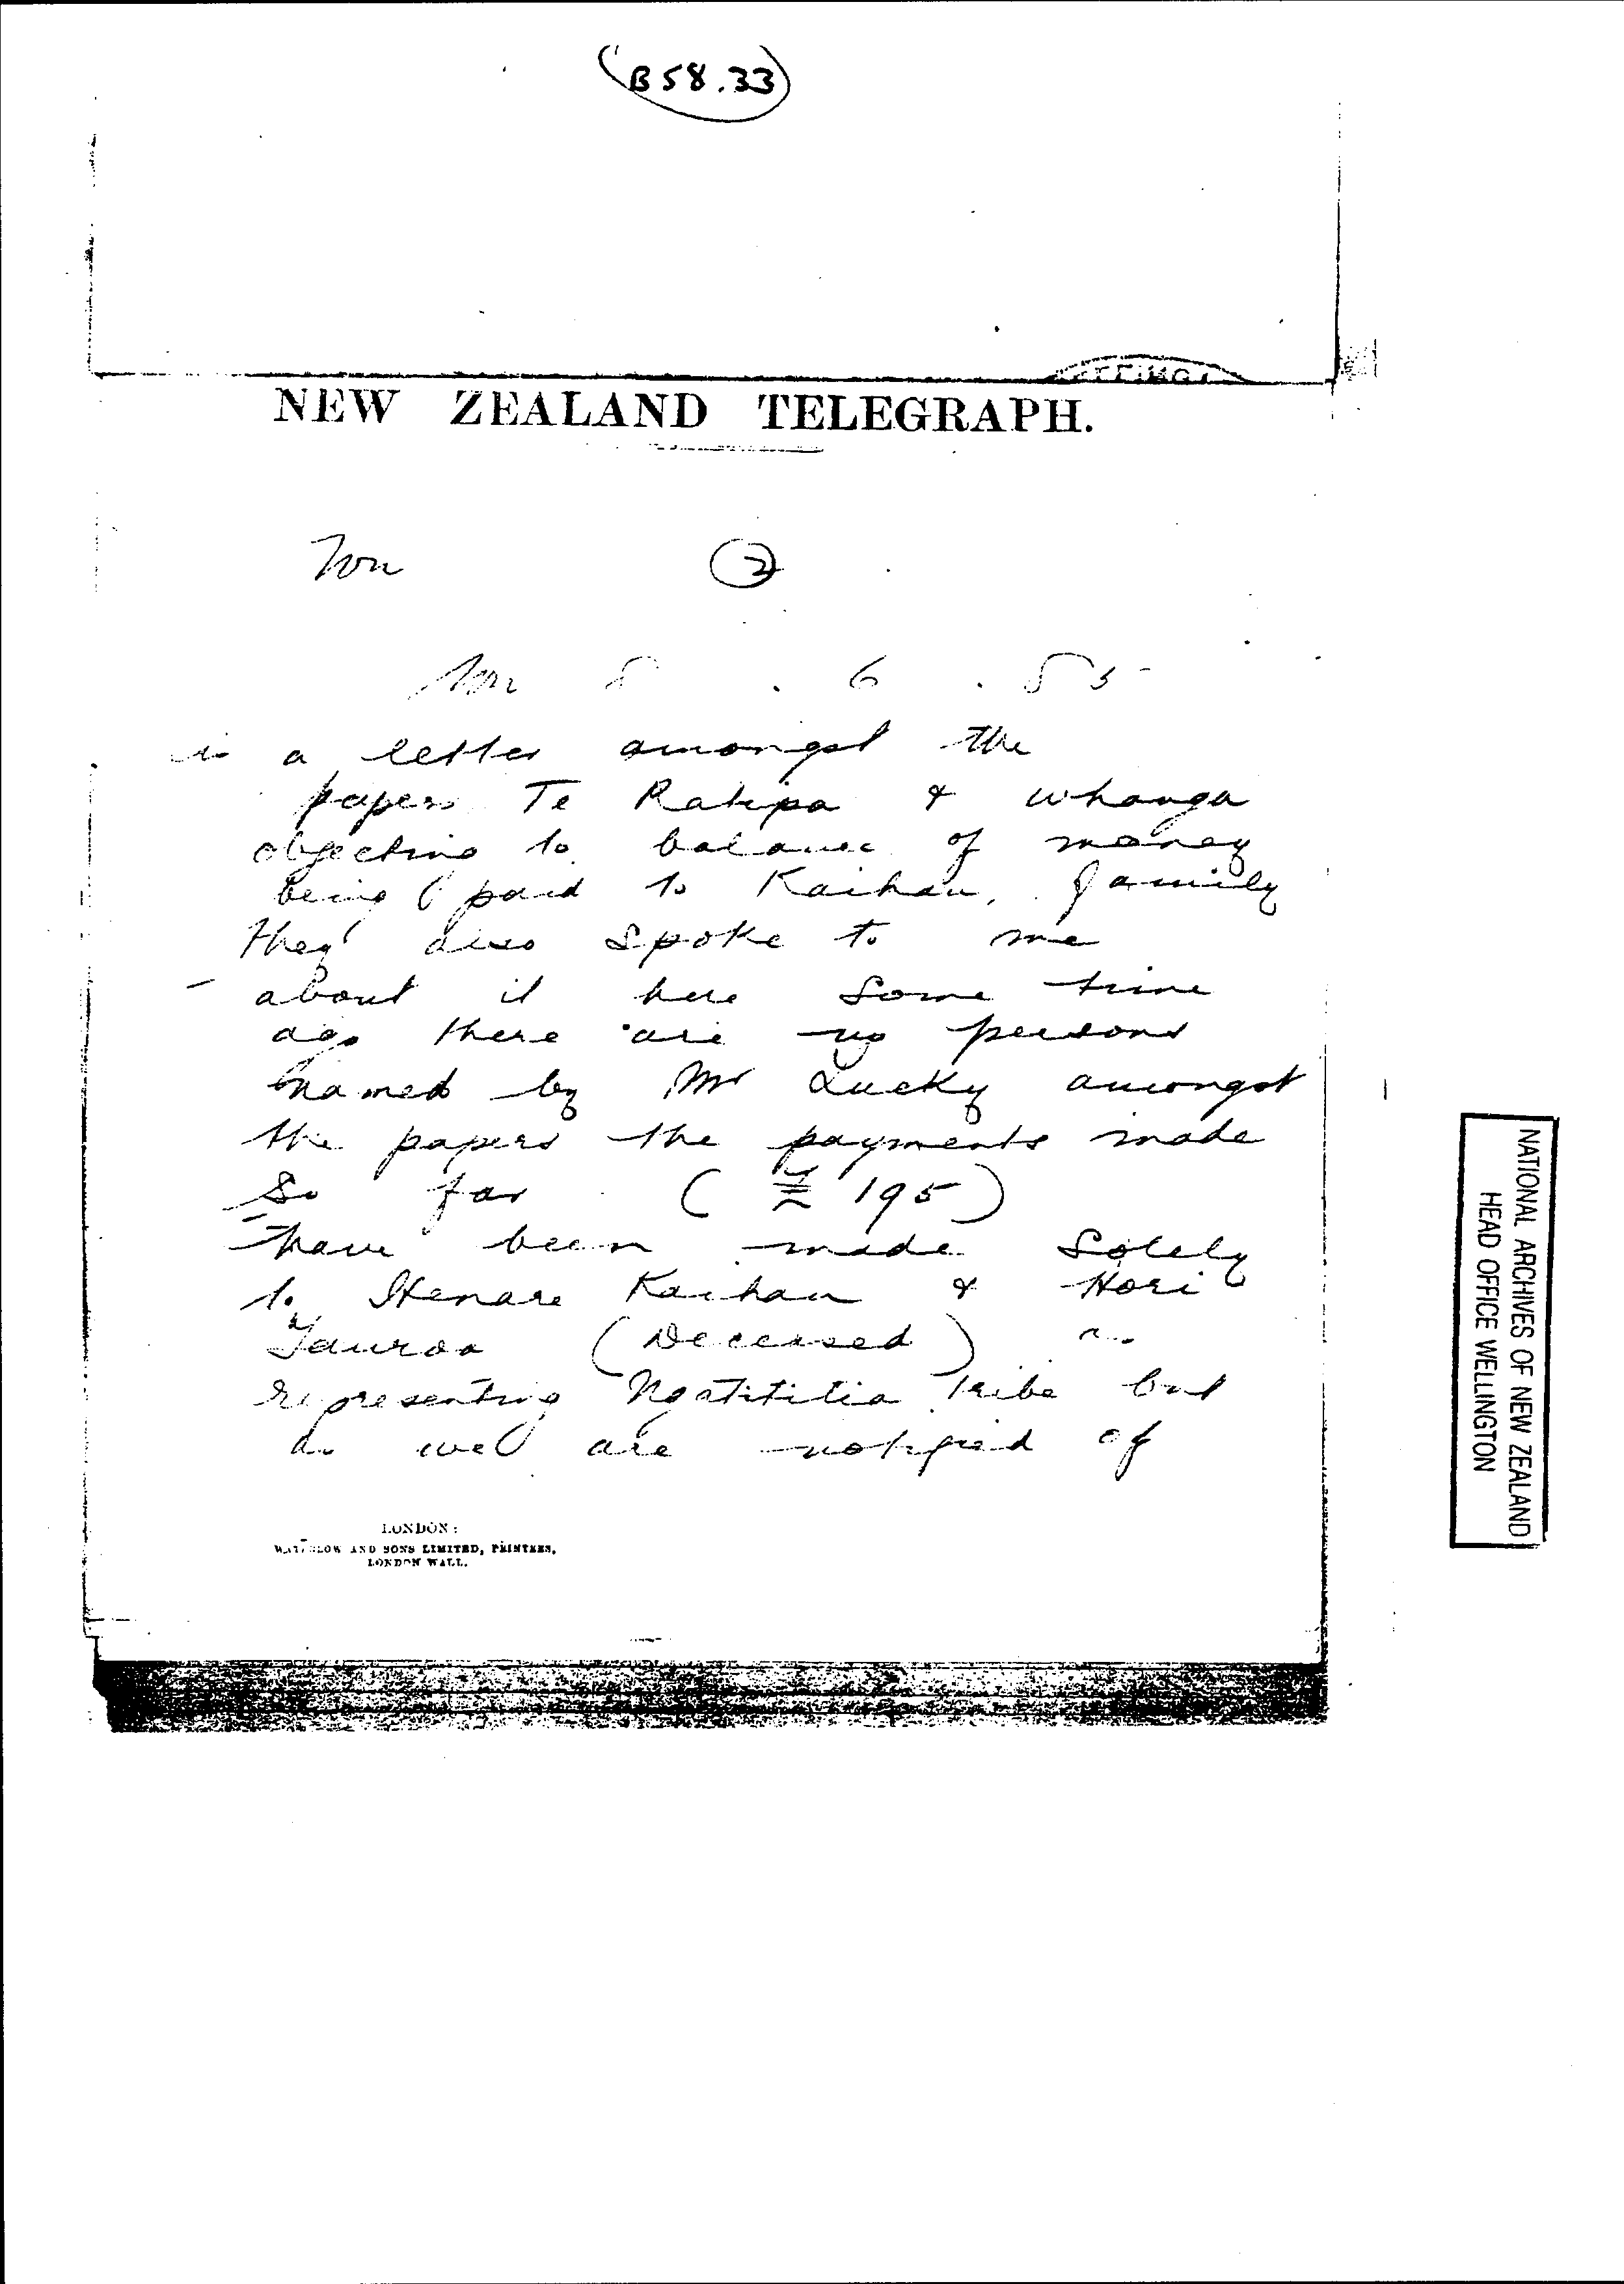 B58.33
NEW ZEALAND TELEGRAPH.
2
8 . 6 . 85
is a letter amongst the
papers Te Rakipa & Whanga
objecting to balance of money
being paid to Kaihau, family
they also spoke to me
about it here some time
ago there are no persons
named by Mr Lucky amongst
the papers the payments made
so far (£ 195)
have been made solely
to Henare Kaihau & Hori
Tauroa (Deceased) as
representing Ngatititia Tribe but
as we are notified of
LONDON:
WATERLOW AND SONS LIMITED, PRINTERS,
LONDON WALL.
NATIONAL ARCHIVES OF NEW ZEALAND
HEAD OFFICE WELLINGTON